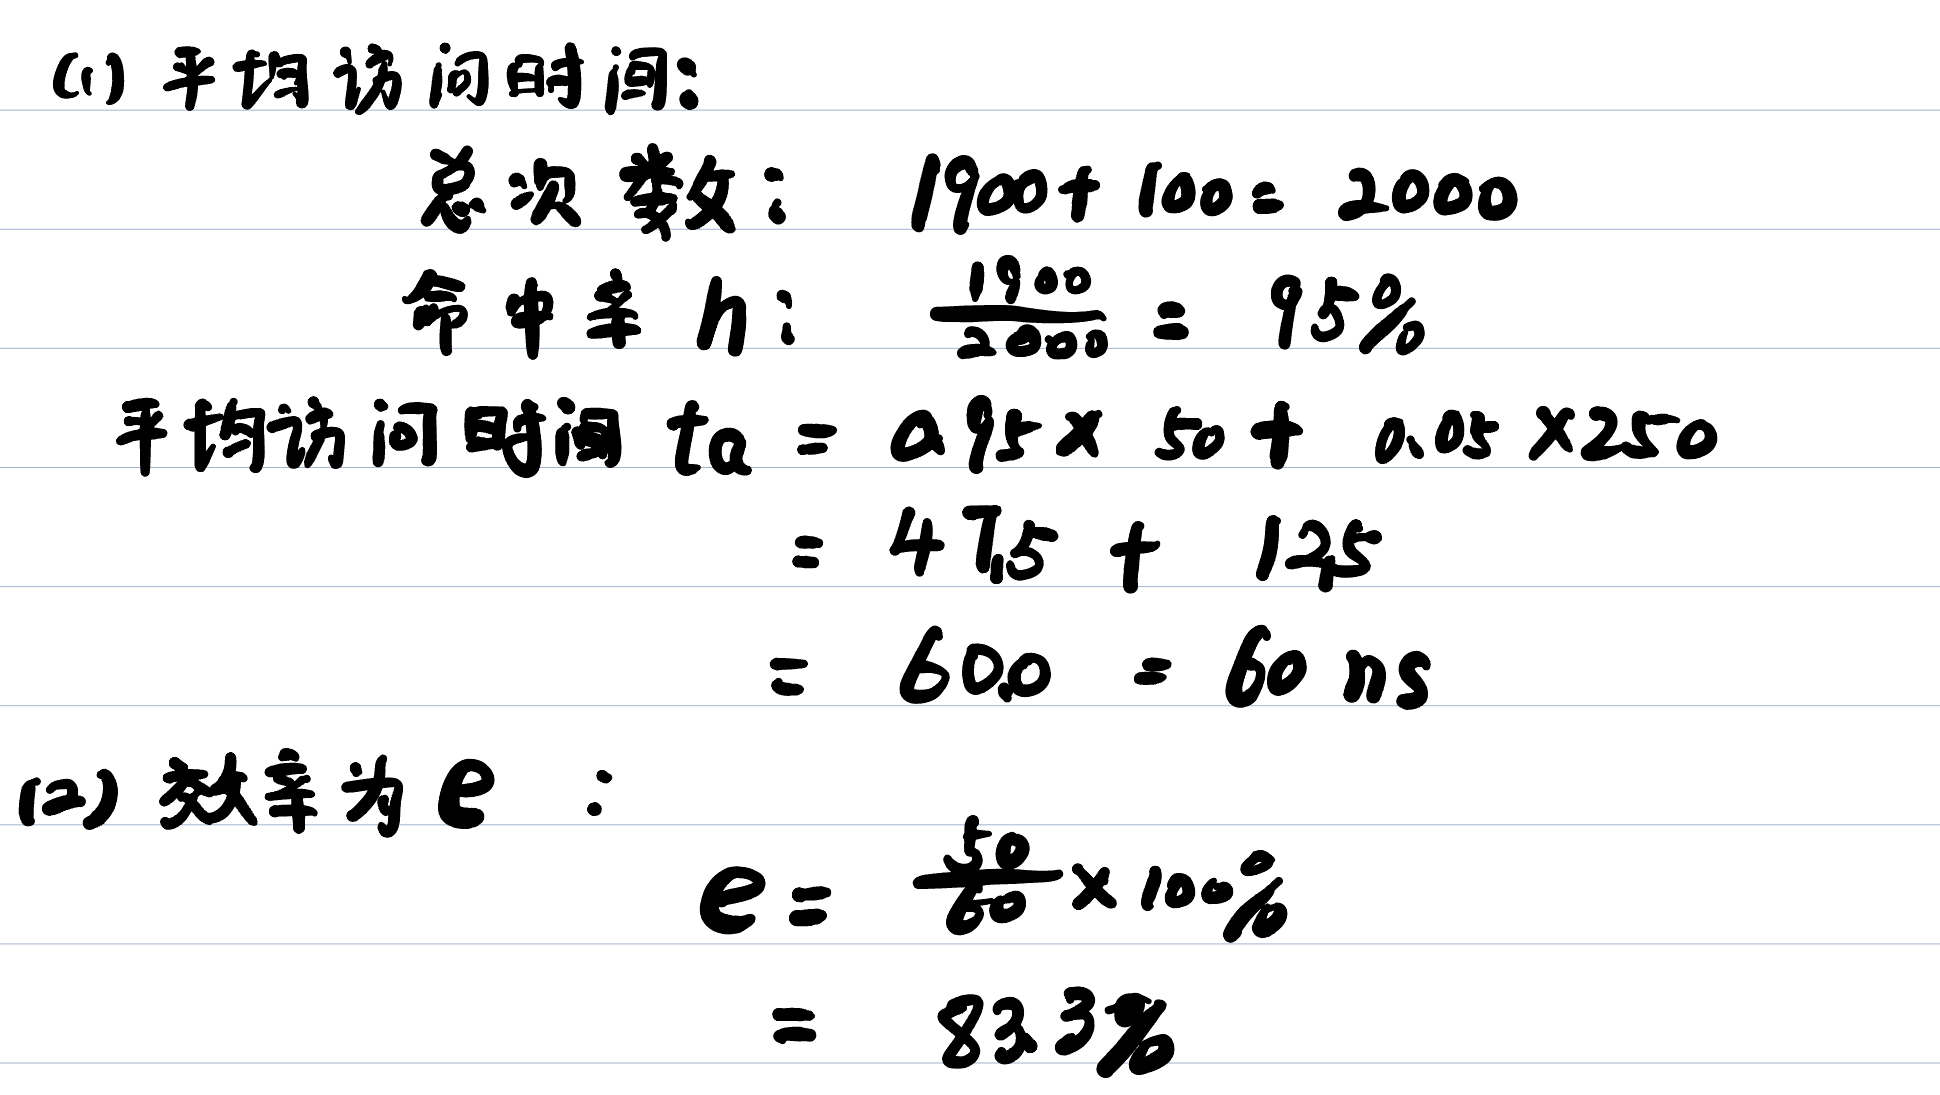 (1) 平均访问时间:
总次数: 1900+100=2000
命中率 h: 1900/2000 = 95%
平均访问时间 ta = 0.95 × 50 + 0.05 × 250
= 47.5 + 12.5
= 60.0 = 60 ns
(2) 效率为 e :
e = 50/60 × 100%
= 83.3%